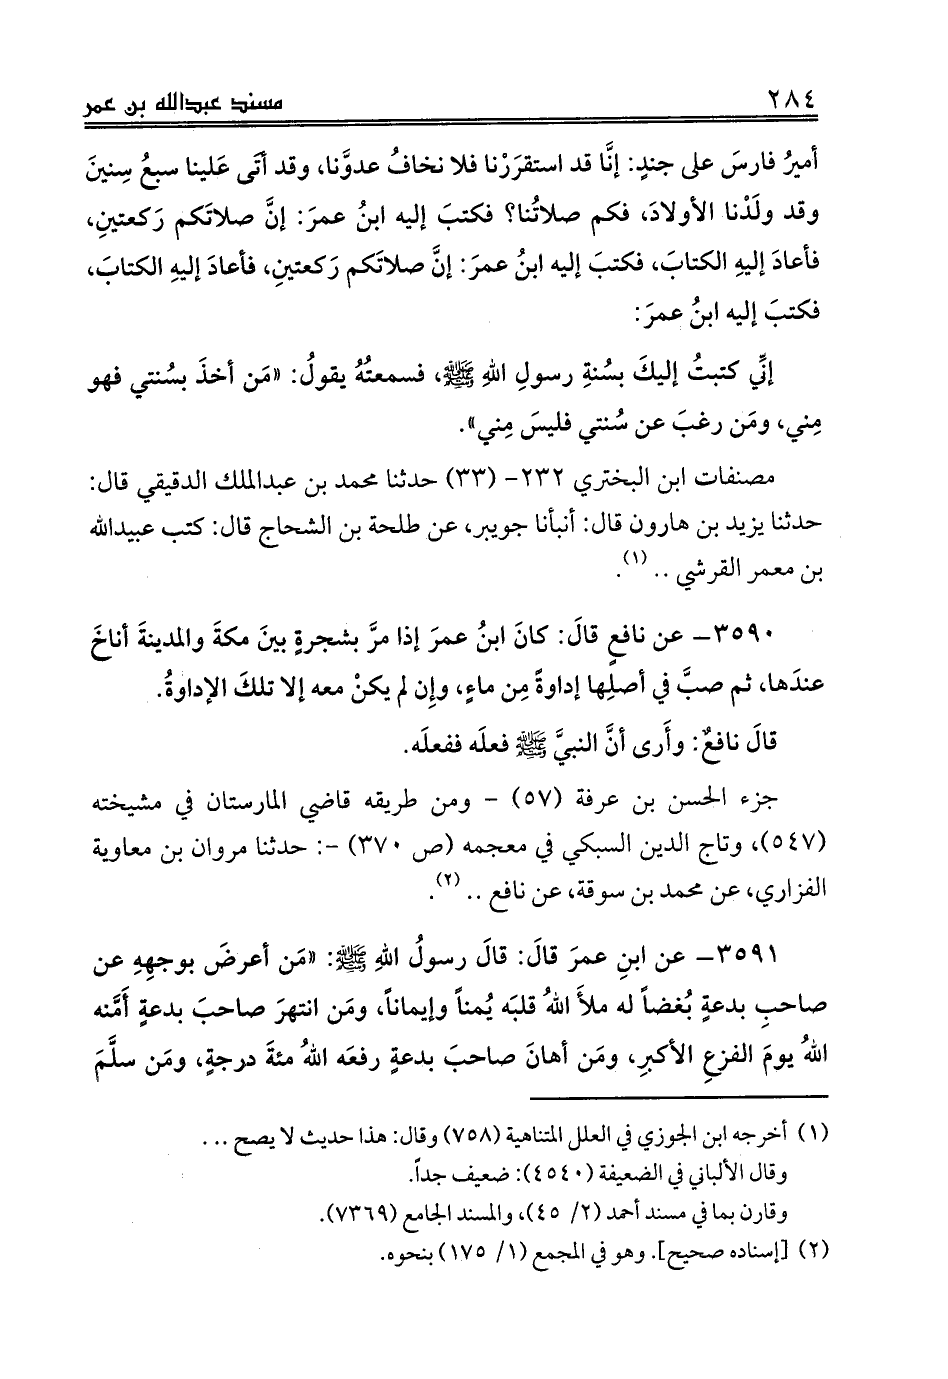 ٢٨٤ مسند عبدالله بن عمر
أميرُ فارسَ على جندٍ: إنَّا قد استقرَرْنا فلا نخافُ عدوَّنا، وقد أتَى عَلينا سبعُ سِنينَ
وقد ولَدْنا الأولادَ، فكم صلاتُنا؟ فكتبَ إليه ابنُ عمرَ: إنَّ صلاتَكم رَكعتينِ،
فأعادَ إليهِ الكتابَ، فكتبَ إليه ابنُ عمرَ: إنَّ صلاتَكم رَكعتينِ، فأعادَ إليهِ الكتابَ،
فكتبَ إليه ابنُ عمرَ:
إنِّي كتبتُ إليكَ بسُنةِ رسولِ اللهِ ﷺ، فسمعتُهُ يقولُ: «مَن أخذَ بسُنتي فهو
مِني، ومَن رغبَ عن سُنتي فليسَ مِني».
مصنفات ابن البختري ٢٣٢- (٣٣) حدثنا محمد بن عبدالملك الدقيقي قال:
حدثنا يزيد بن هارون قال: أنبأنا جويبر، عن طلحة بن الشحاج قال: كتب عبيدالله
بن معمر القرشي .. (١).
٣٥٩٠- عن نافعٍ قالَ: كانَ ابنُ عمرَ إذا مرَّ بشجرةٍ بينَ مكةَ والمدينةَ أناخَ
عندَها، ثم صبَّ في أصلِها إداوةً مِن ماءٍ، وإن لم يكنْ معه إلا تلكَ الإداوةُ.
قالَ نافعٌ: وأَرى أنَّ النبيَّ ﷺ فعلَه ففعلَه.
جزء الحسن بن عرفة (٥٧) - ومن طريقه قاضي المارستان في مشيخته
(٥٤٧)، وتاج الدين السبكي في معجمه (ص ٣٧٠) -: حدثنا مروان بن معاوية
الفزاري، عن محمد بن سوقة، عن نافع .. (٢).
٣٥٩١- عن ابنِ عمرَ قالَ: قالَ رسولُ اللهِ ﷺ: «مَن أعرضَ بوجهِهِ عن
صاحبِ بدعةٍ بُغضاً له ملأَ اللهُ قلبَه يُمناً وإيماناً، ومَن انتهرَ صاحبَ بدعةٍ أمَّنه
اللهُ يومَ الفزعِ الأكبرِ، ومَن أهانَ صاحبَ بدعةٍ رفعَه اللهُ مئةَ درجةٍ، ومَن سلَّمَ
(١) أخرجه ابن الجوزي في العلل المتناهية (٧٥٨) وقال: هذا حديث لا يصح ...
وقال الألباني في الضعيفة (٤٥٤٠): ضعيف جداً.
وقارن بما في مسند أحمد (٢/ ٤٥)، والمسند الجامع (٧٣٦٩).
(٢) [إسناده صحيح]. وهو في المجمع (١/ ١٧٥) بنحوه.